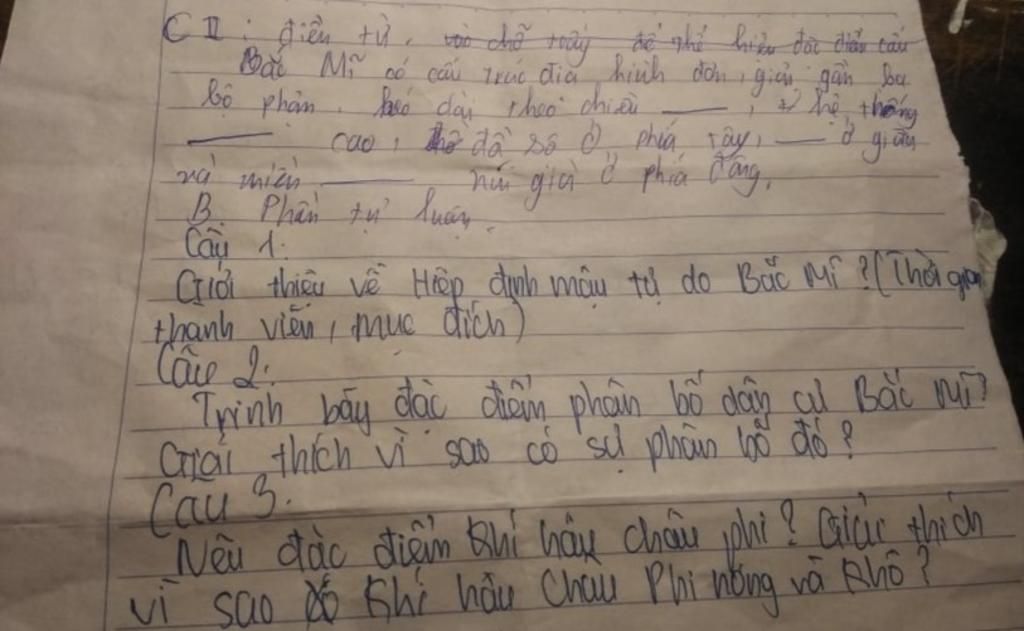 C II : điền từ. vào chỗ trống để thể hiện đặc điểm cấu
Bắc Mĩ có cấu trúc địa hình đơn, giản gồm ba
bộ phận. kéo dài theo chiều ——, từ hệ thống
—— cao, đồ sộ ở phía tây, —— ở giữa
và miền —— núi già ở phía đông,
B. Phần tự luận.
Câu 1:
Giới thiệu về Hiệp định mậu tự do Bắc Mĩ ? (Thời gian
thành viên, mục đích)
Câu 2:
Trình bãy đặc điểm phân bố dân cư Bắc Mĩ?
Giải thích vì sao có sự phân bố đó?
Cau 3.
Nêu đặc điểm khí hậu châu phi? Giải thích
vì sao khí hậu Châu Phi nóng và khô?